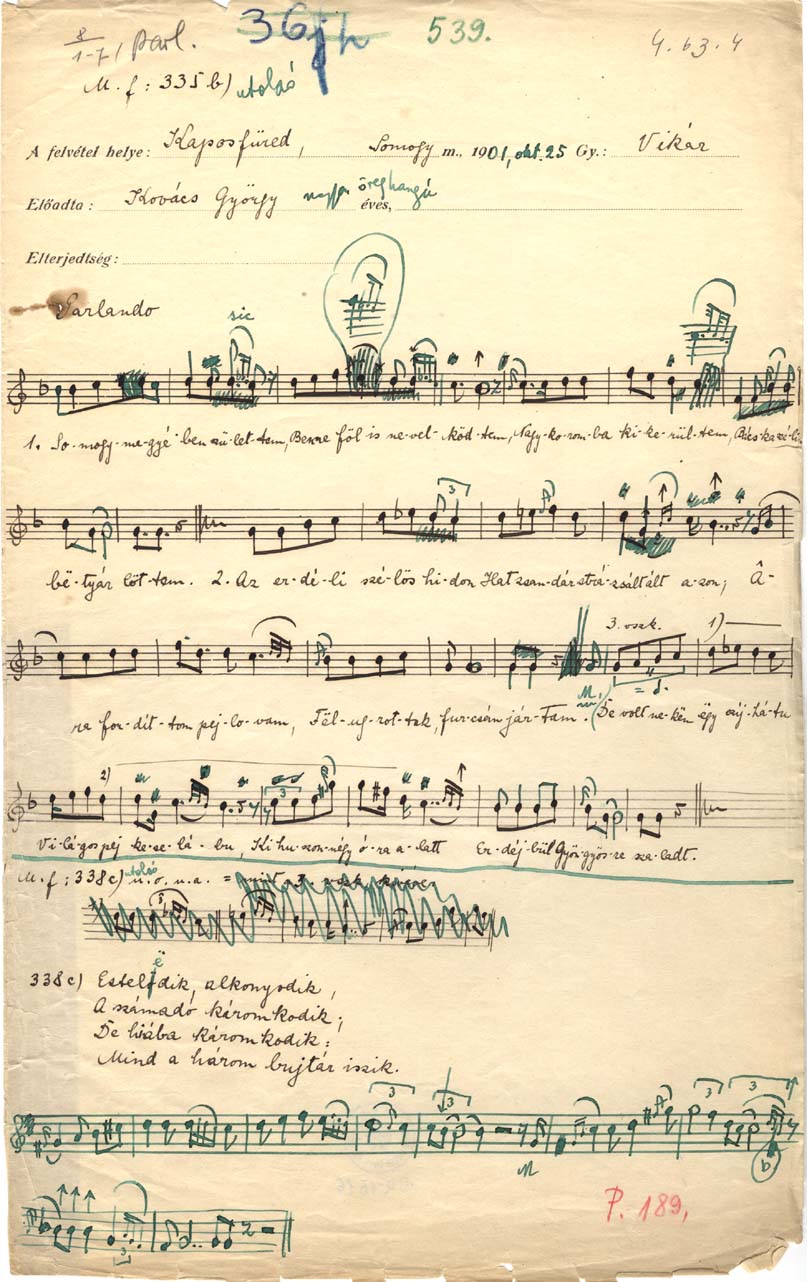 8
1-7 / parl. 36jh 539. 4. 63. 4
M. f: 335b) utolsó
A felvétel helye: Kaposfüred, Somogy m., 1901, okt. 25 Gy.: Vikár
Előadta: Kovács György nagyon öreghangú éves,
Elterjedtség:
Parlando sic
1. So-mogy-me-gyé-ben szü-let-tem, Benne föl is ne-vel-köd-tem, Nagy-ko-rom-ba ki-ke-rül-tem,
bë-tyár löt-tem. 2. Az er-dé-li szé-lös hi-don Hat zsan-dár strá-zsáltált a-zon; Â-
3. vszk. 1)
ra for-dít-tom pej-lo-vam, Fél-ug-rot-tak, fur-csán jár-tam. De volt ne-këm ëgy
2)
Vi-lá-gos pej ke-se-lá-bu, Ki hu-szon-négy ó-ra a-latt Er-déj-bül Gyön-gyös-re sza-ladt.
M. f: 338c) utolsó u. o. u. a. =
338c) Estelëdik, alkonyodik,
A számadó káromkodik;
De hiába káromkodik:
Mind a három bujtár iszik.
P. 189,